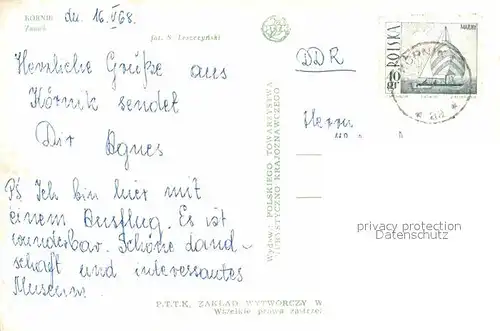 KÓRNIK
Zamek
dn. 16.V 68.
fot. S. Leszczyński
Herzliche Grüße aus
Kórnik sendet
Dir Agnes
PS Ich bin hier mit
einem Ausflug. Es ist
wunderbar. Schöne Land-
schaft und interessantes
Museum
Wydaw: POLSKIEGO TOWARZYSTWA
TURYSTYCZNO KRAJOZNAWCZEGO
P.T.T.K. ZAKŁAD WYTWÓRCZY W
Wszelkie prawa zastrze
DDR
Herrn
POLSKA
10 gr
KÓRNIK
privacy protection
Datenschutz